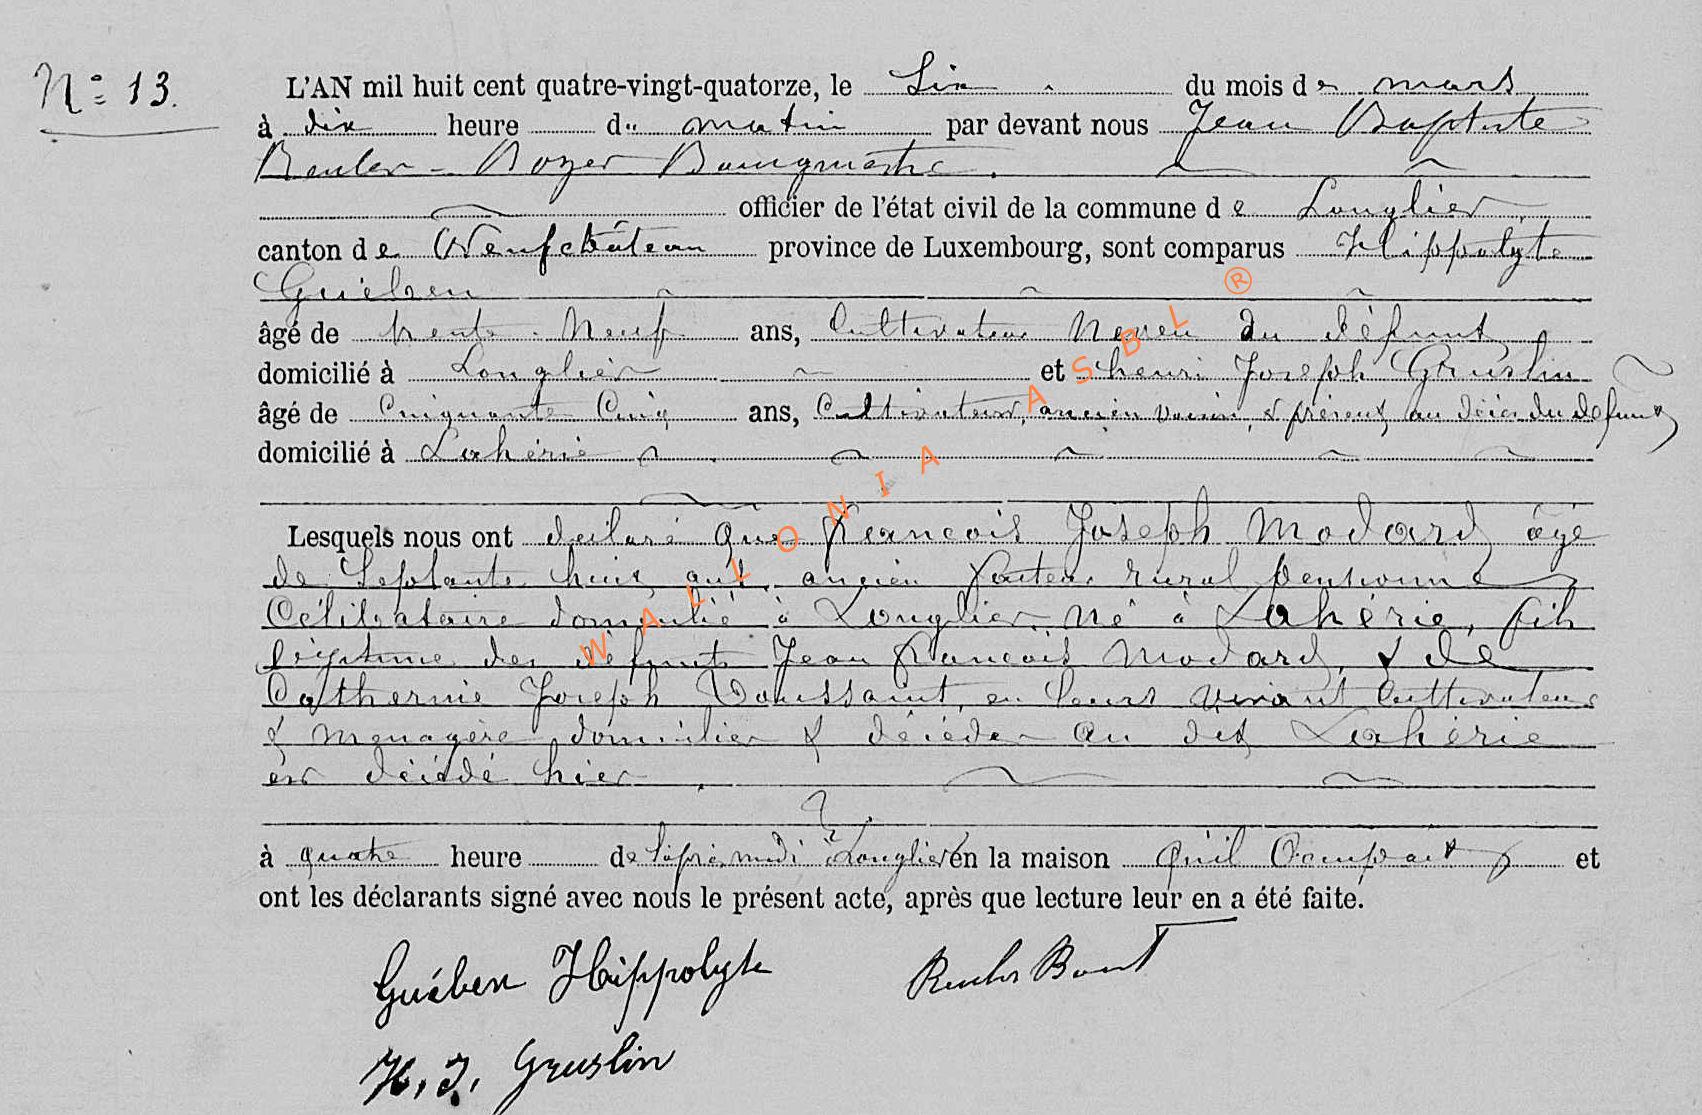 N° 13.
L'AN mil huit cent quatre-vingt-quatorze, le Six du mois de mars
à dix heure du matin par devant nous Jean Baptiste
Reuler-Rozer Bourgmestre.
officier de l'état civil de la commune de Longlier
canton de Neufchâteau province de Luxembourg, sont comparus Hippolyte
Guében
âgé de trente-Neuf ans, Cultivateur Neveu du défunt
domicilié à Longlier et henri Joseph Gruslin
âgé de Cinquante Cinq ans, Cultivateur, ancien voisin, & présent au décès du défunt
domicilié à Lahérie
Lesquels nous ont déclaré que françois Joseph Modard âgé
de Septante huit ans, ancien facteur rural pensionné
Célibataire domicilié à Longlier né à Lahérie, fils
légitime des défunts Jean françois Modard, & de
Catherine Joseph Toussaint, en leurs vivant Cultivateur
& ménagère domiciliés & décédés au dit Lahérie
est décédé hier
à quatre heure de l'après midi à Longlier en la maison qu'il occupait et
ont les déclarants signé avec nous le présent acte, après que lecture leur en a été faite.
Guében Hippolyte
H. J. Gruslin
WALLONIA ASBL ®